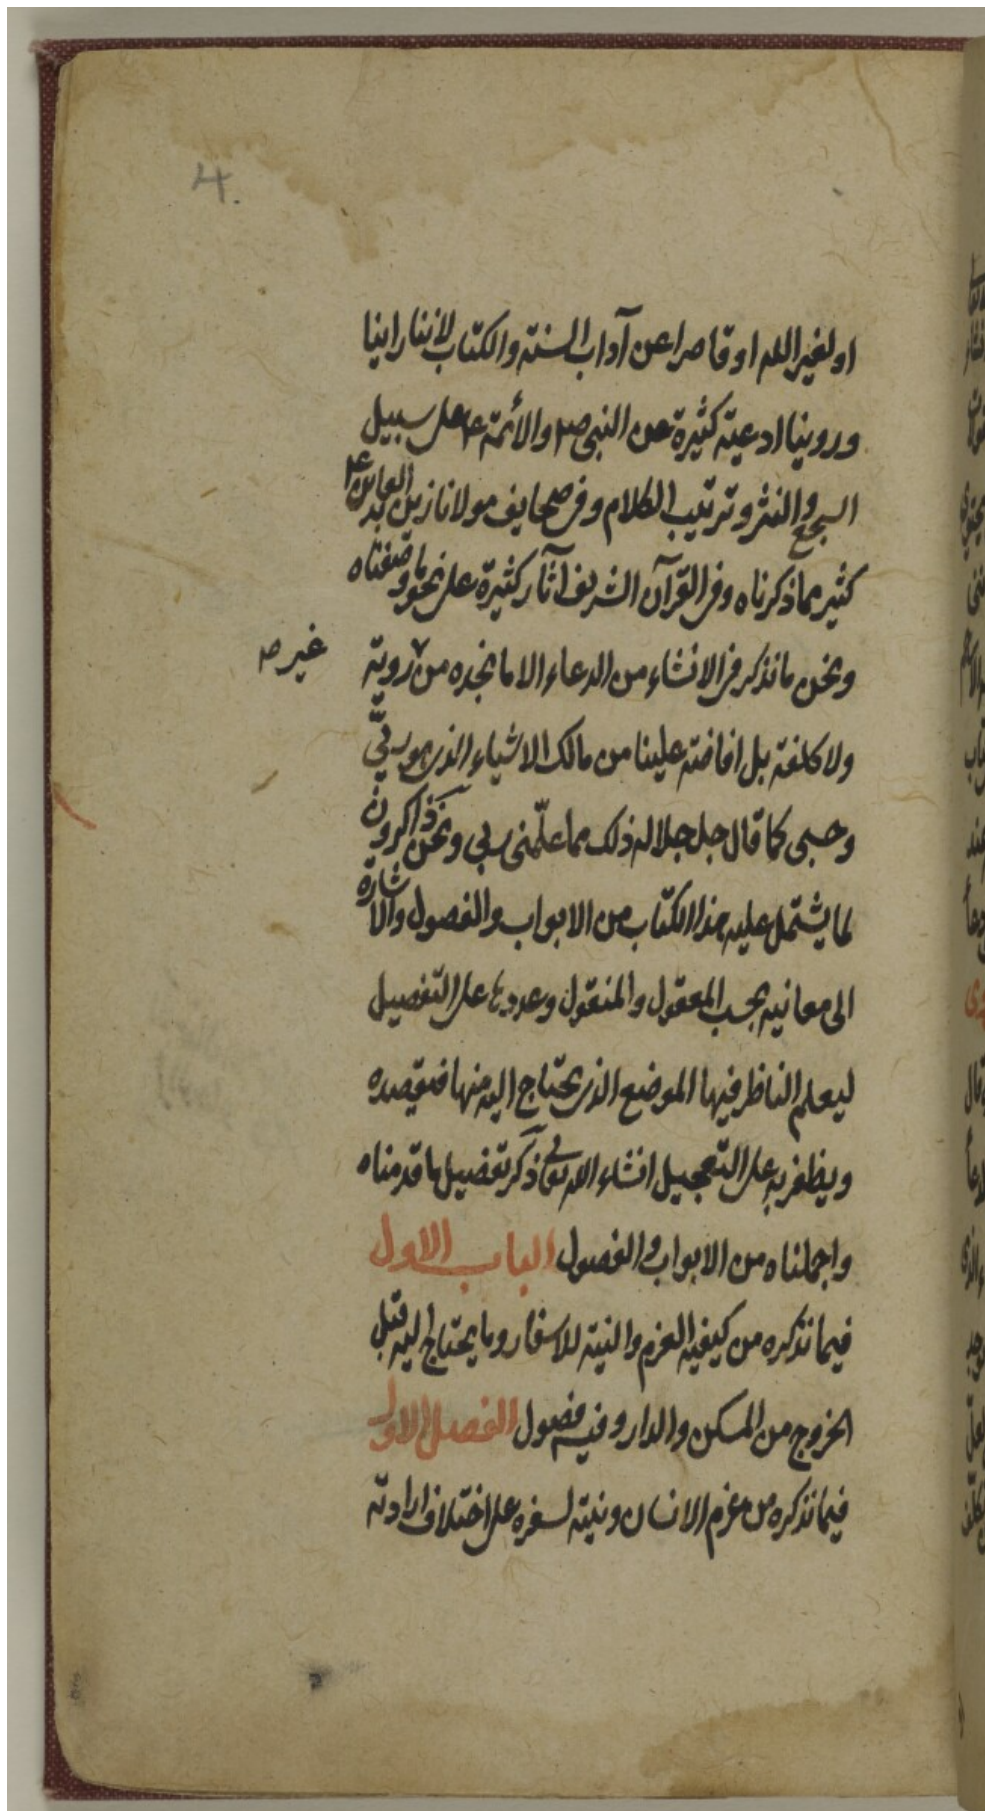 4.
او لغير الله او قاصرا عن آداب السنة والكتاب لاننا راينا
وروينا ادعية كثيرة عن النبي ص والأئمة ع على سبيل
السجع والنثر وترتيب الكلام وفي صحايف مولانا زين العابدين ع
كثير مما ذكرناه وفي القرآن الشريف آثار كثيرة على نحو ما وصفناه
ونحن ما نذكر في الانشاء من الدعاء الا ما نجده من روية
غير ص
ولا كلفة بل افاضته علينا من مالك الاشياء الذي هو ربّي
وحسبي كما قال جل جلاله ذلك مما علّمني ربي ونحن ذاكرون
لما يشتمل عليه هذا الكتاب من الابواب والفصول والاشارة
الى معانيه بحسب المعقول والمنقول وعددها على التفصيل
ليعلم الناظر فيها الموضع الذي يحتاج اليه منها فيقصده
ويظفر به على التعجيل انشاء الله تعالى ذكر تفصيل ما قدمناه
واجملناه من الابواب والفصول الباب الاول
فيما نذكره من كيفية العزم والنية للاسفار وما يحتاج اليه قبل
الخروج من المسكن والدار وفيه فصول الفصل الاول
فيما نذكره من عزم الانسان ونيته لسفره على اختلاف ارادته